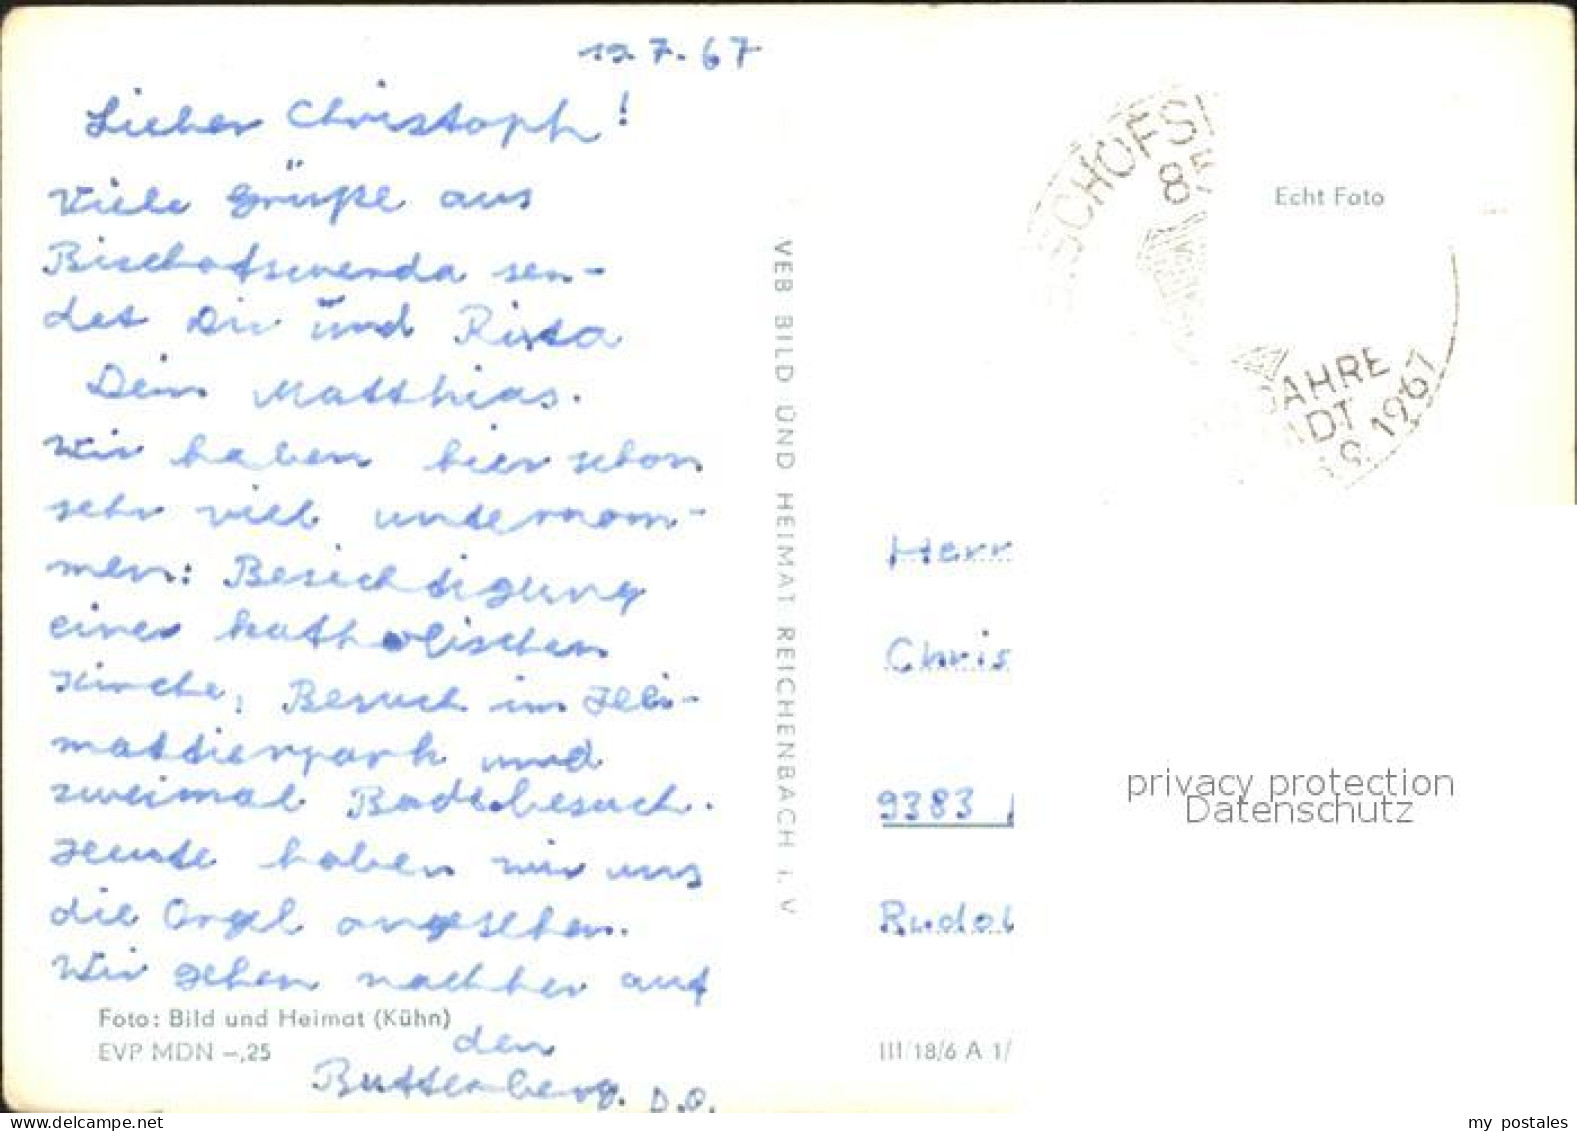 19.7.67
Lieber Christoph!
Viele Grüße aus
Bischofswerda sen-
det Dir und
Dein Matthias.
Wir haben hier schon
sehr viel unternom-
men: Besichtigung
einer katholischen
Kirche, Besuch im Hei-
mattierpark und
zweimal Badebesuch.
Heute haben wir uns
die Orgel angesehen.
Wir gehen nachher auf
den
Butterberg. D.O.
Foto: Bild und Heimat (Kühn)
EVP MDN –,25
VEB BILD UND HEIMAT REICHENBACH i. V
SCHOFS
8
AHRE
DT
1967
Echt Foto
Herr
Chris
9383
Rudol
III/18/6 A 1/
privacy protection
Datenschutz
my postales